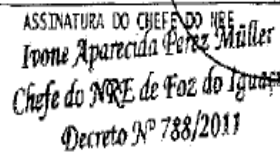 ASSINATURA DO CHEFE DO NRE
Ivone Aparecida Perez Müller
Chefe do NRE de Foz do Iguaçu
Decreto Nº 788/2011